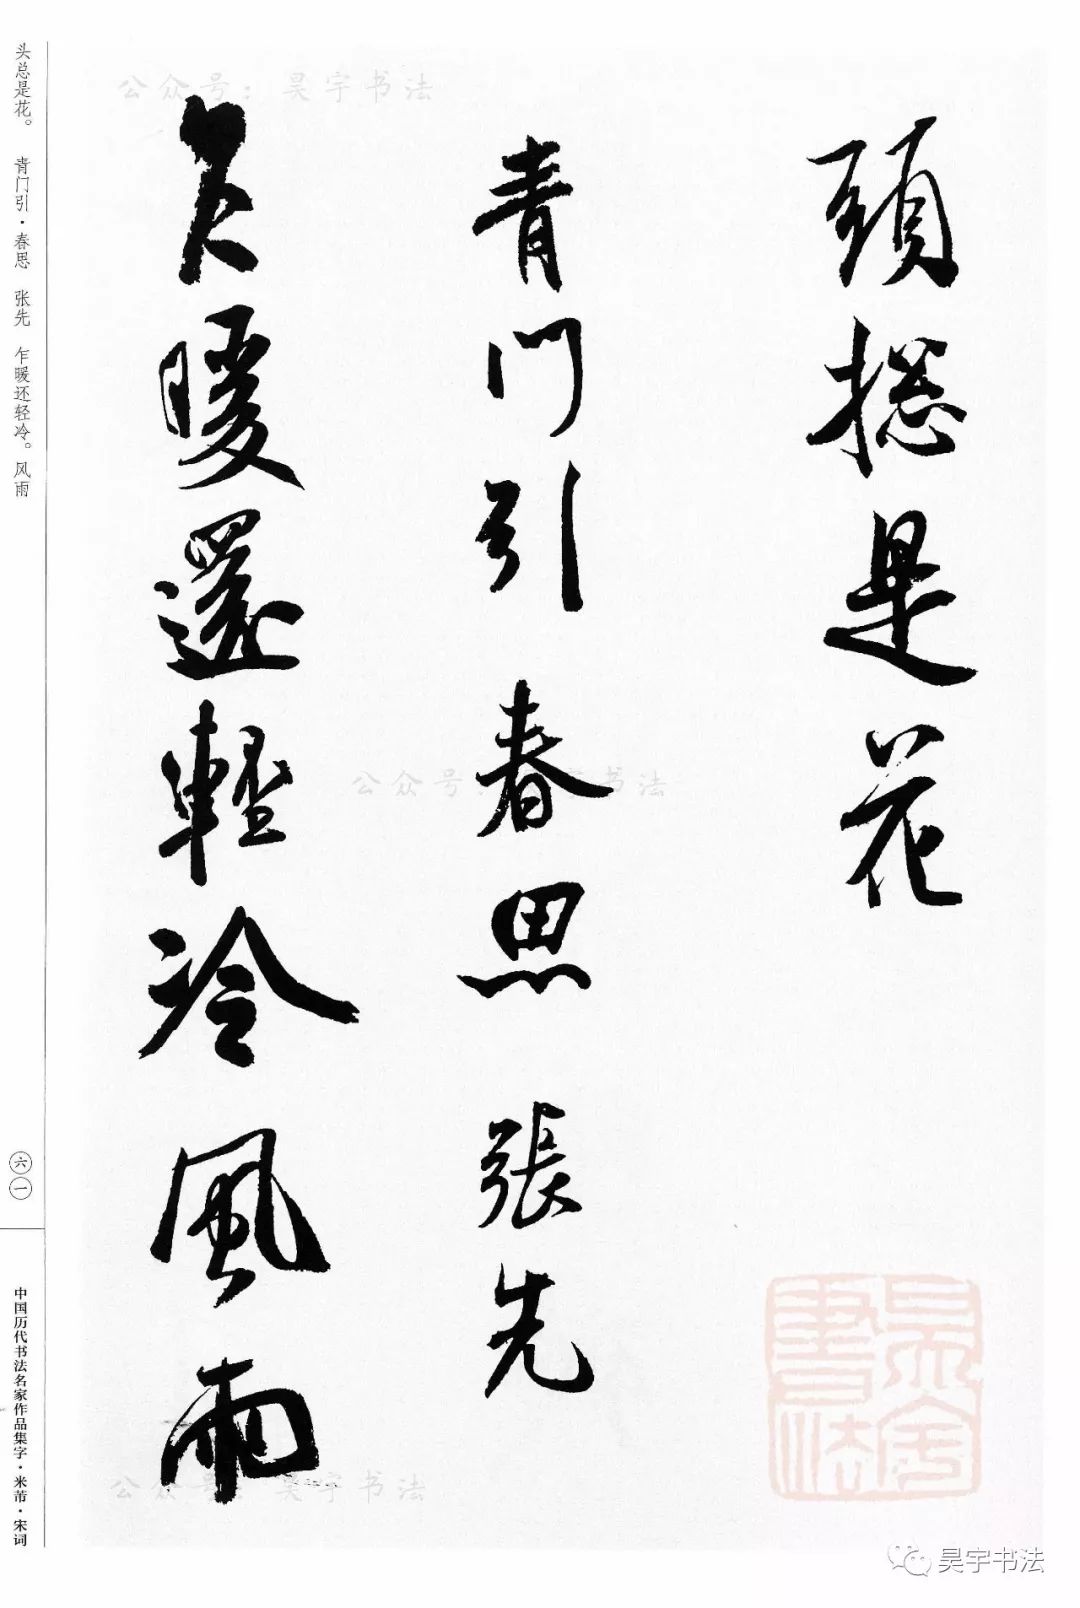 頭揔是花
青門引 春思 張先
乍暖還輕冷風雨
头总是花。 青门引·春思 张先 乍暖还轻冷。风雨
六一
中国历代书法名家作品集字·米芾·宋词
公众号：昊宇书法
公众号：昊宇书法
公众号：昊宇书法
昊宇書法
昊宇书法